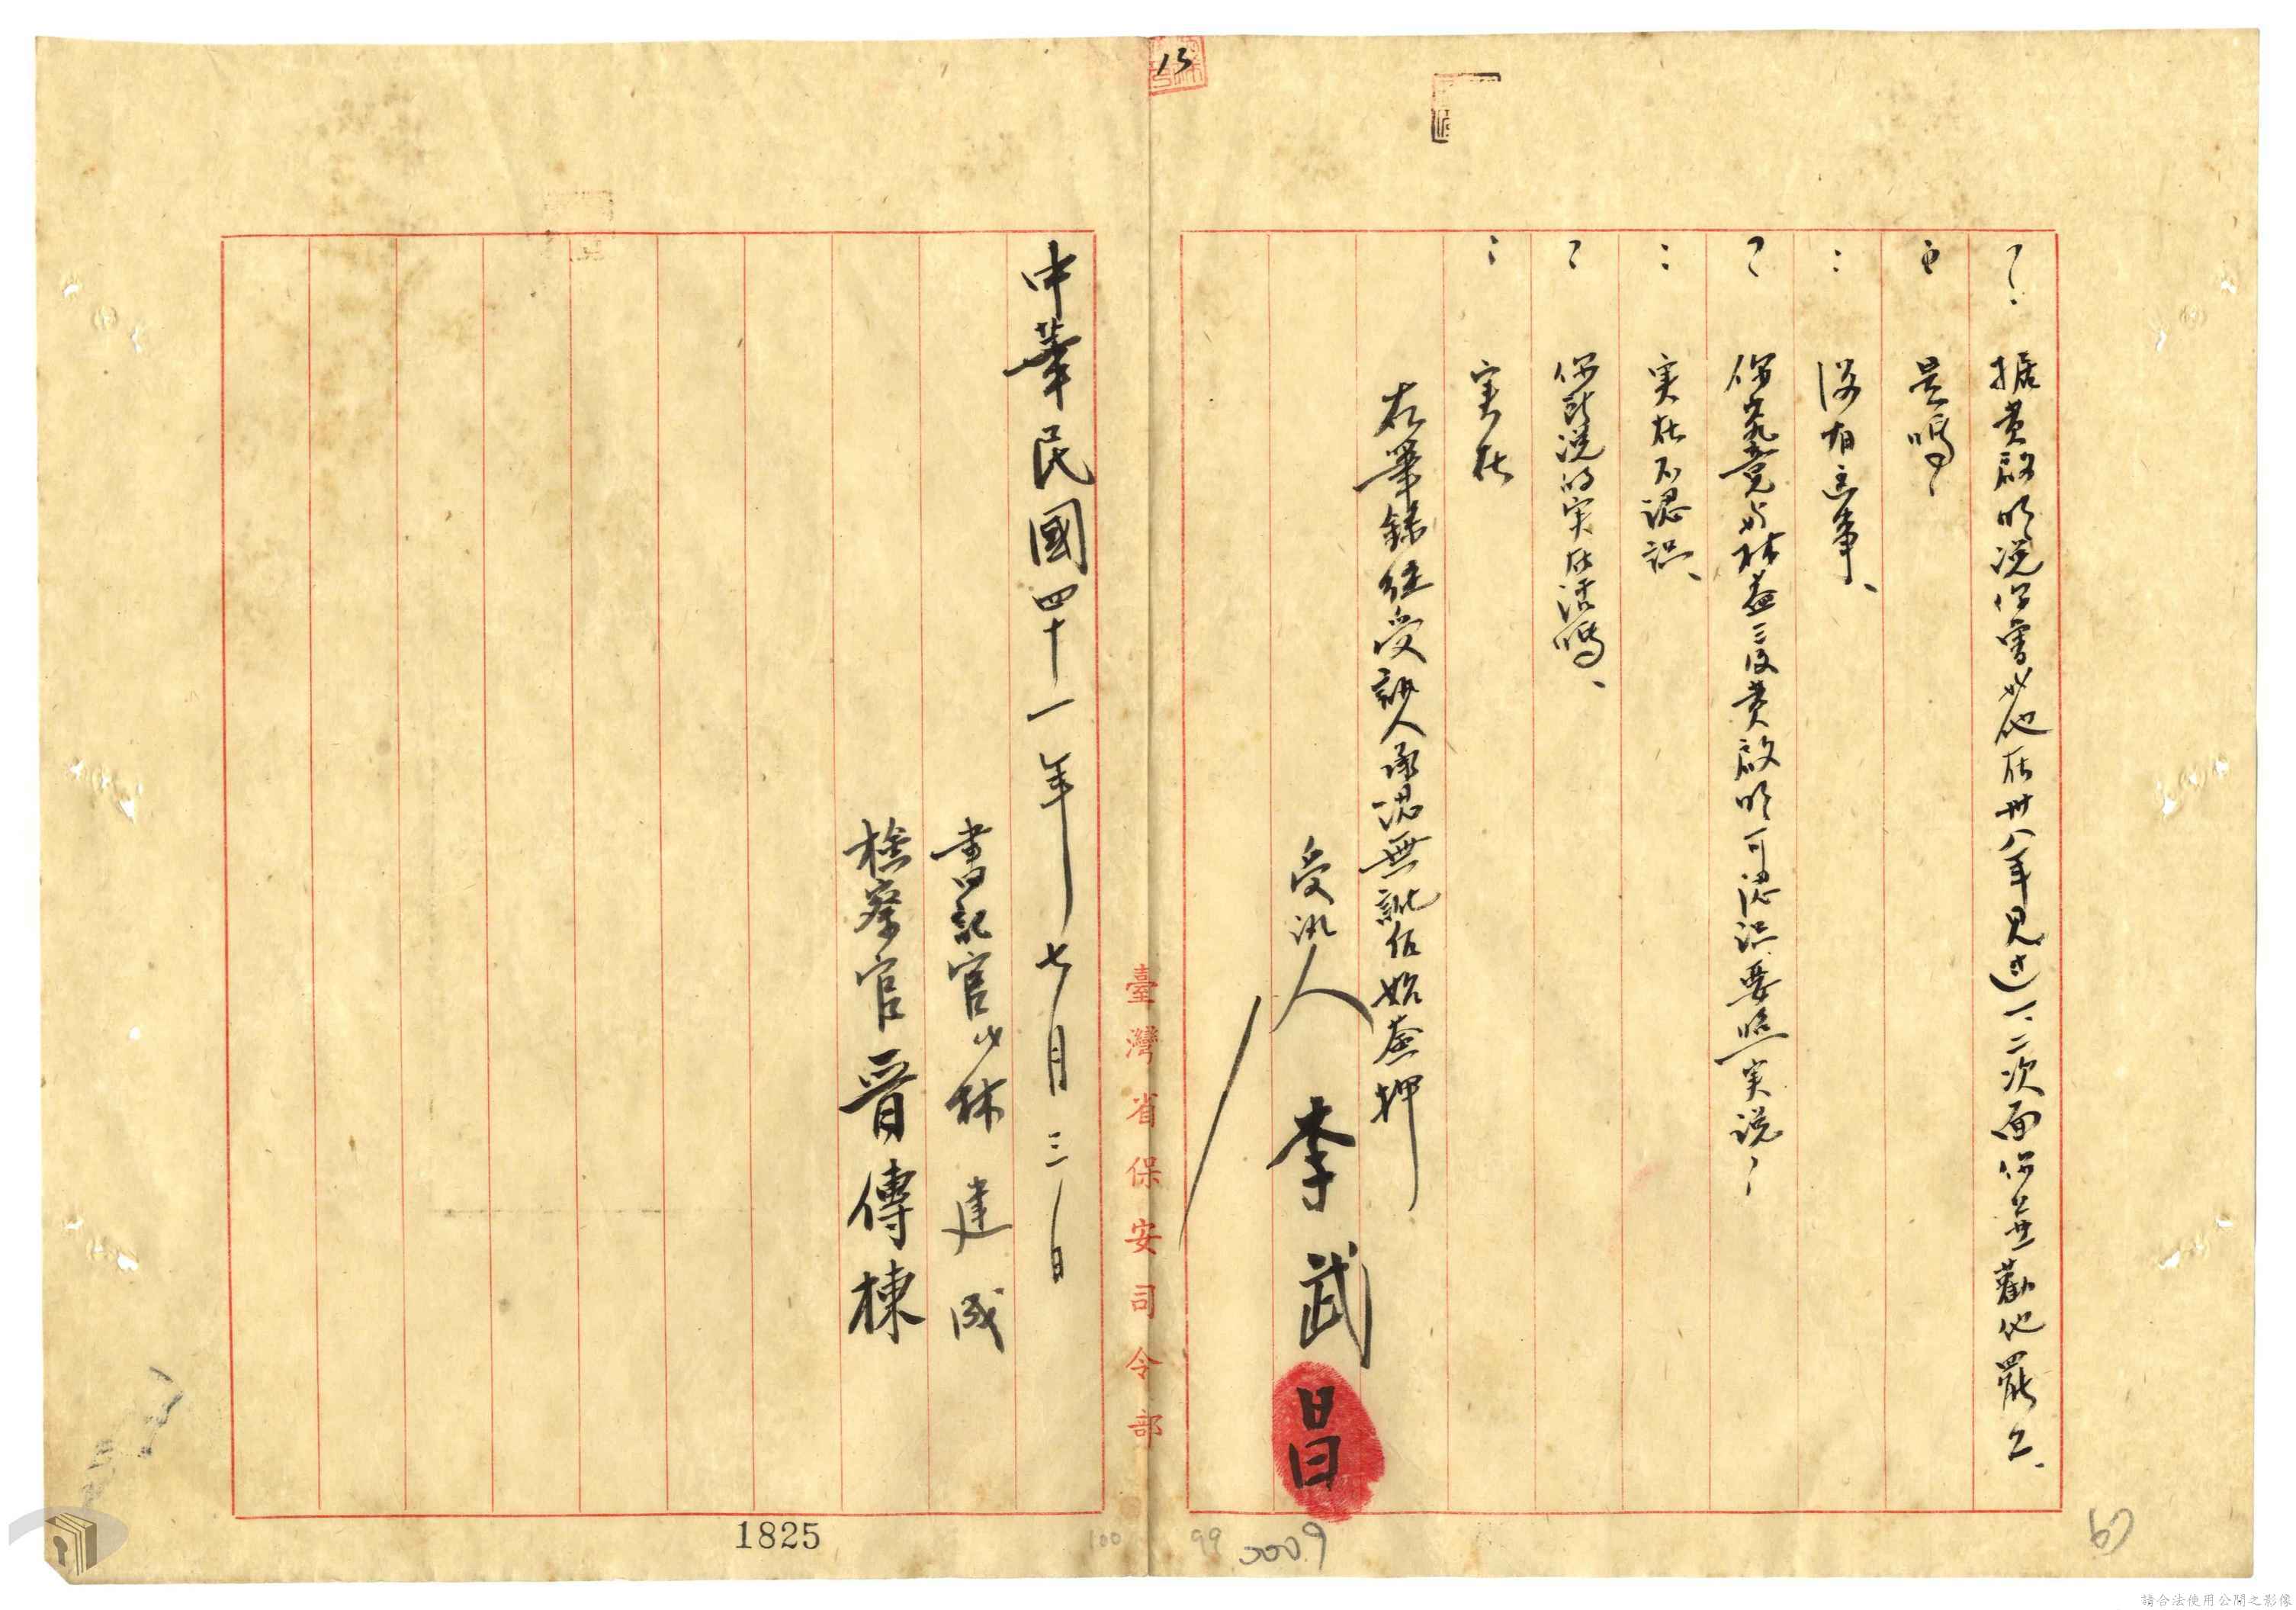 ?: 據黃啟明說你曾與他在卅八年見過一、二次面你並勸他罷工、
是嗎?
: 沒有這事、
? 你究竟與林益三及黃啟明可認識要照实說?
: 実在不認識、
? 你所說的实在话嗎、
: 实在
右筆錄經受訊人承認無訛後始簽押
受訊人 李武昌
臺灣省保安司令部
中華民國四十一年七月三日
書記官 林建成
檢察官 晉傳棟
13
1825
100
99
0009
請合法使用公開之影像